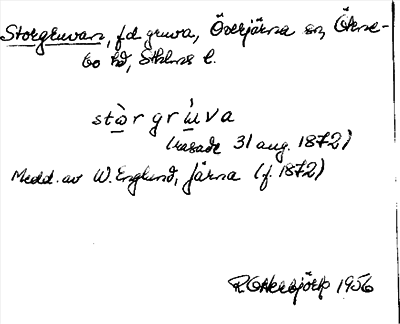 Storgruvan, f.d. gruva, Överjärna sn, Ökne-
bo hd, Sthlms l.
stὼr grɯ̀va
(rasade 31 aug. 1872)
Medd. av W. Englund, Järna (f. 1872)
R Otterbjörk 1956